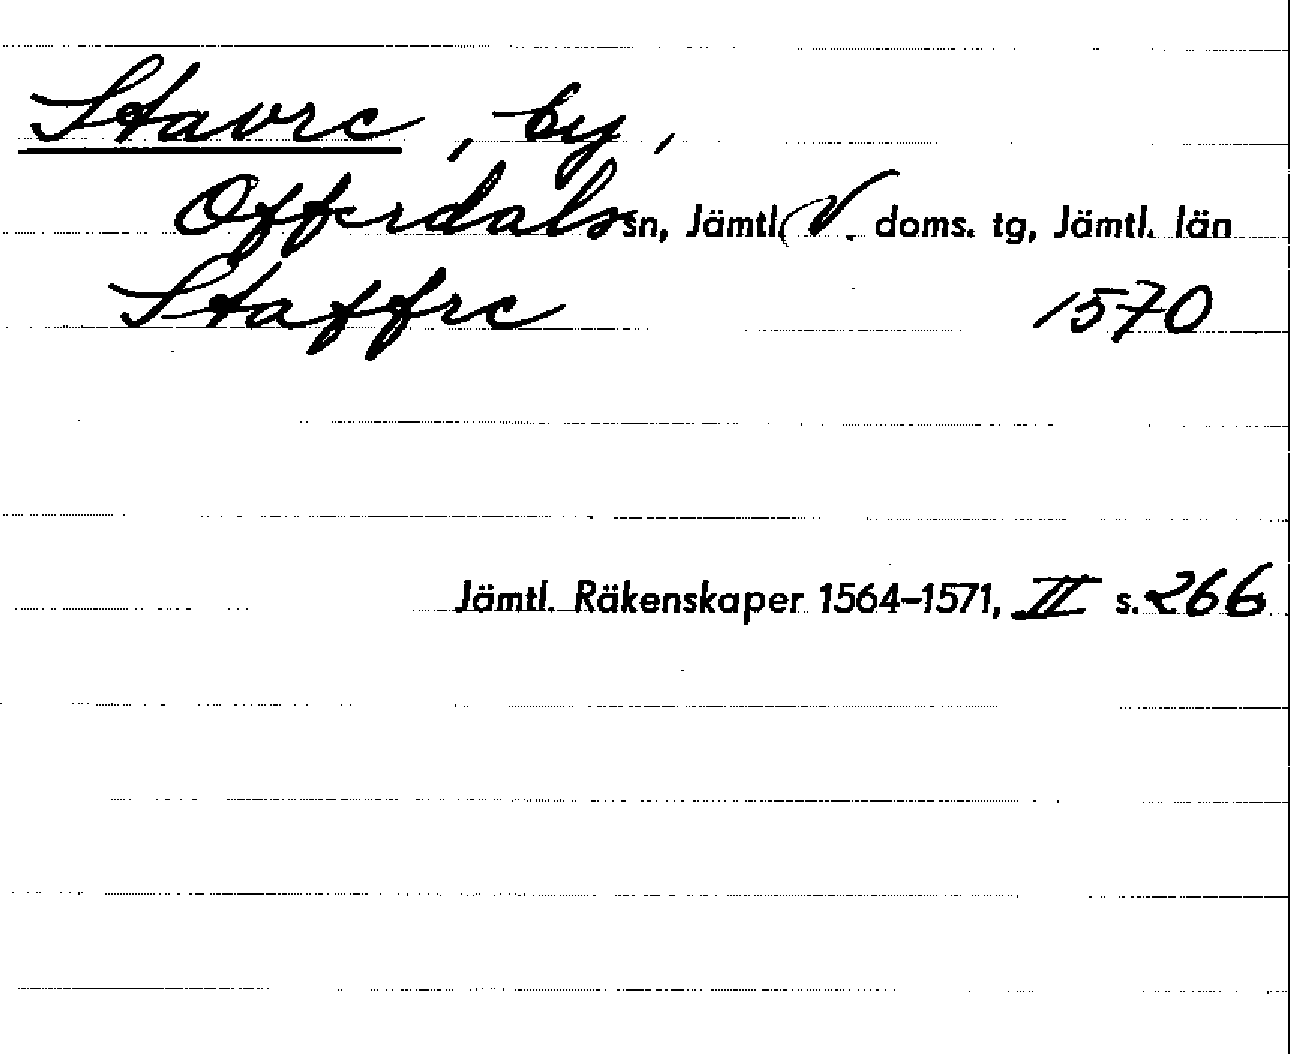 Stavre, by,
Offerdals sn, Jämtl. V. doms. tg, Jämtl. län
Staffre 1570
Jämtl. Räkenskaper 1564-1571, II s. 266